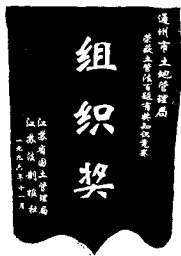 通州市土地管理局
荣获土管法百题有奖知识竞赛
组织奖
江苏省国土管理局
江苏法制报社
一九九六年十一月